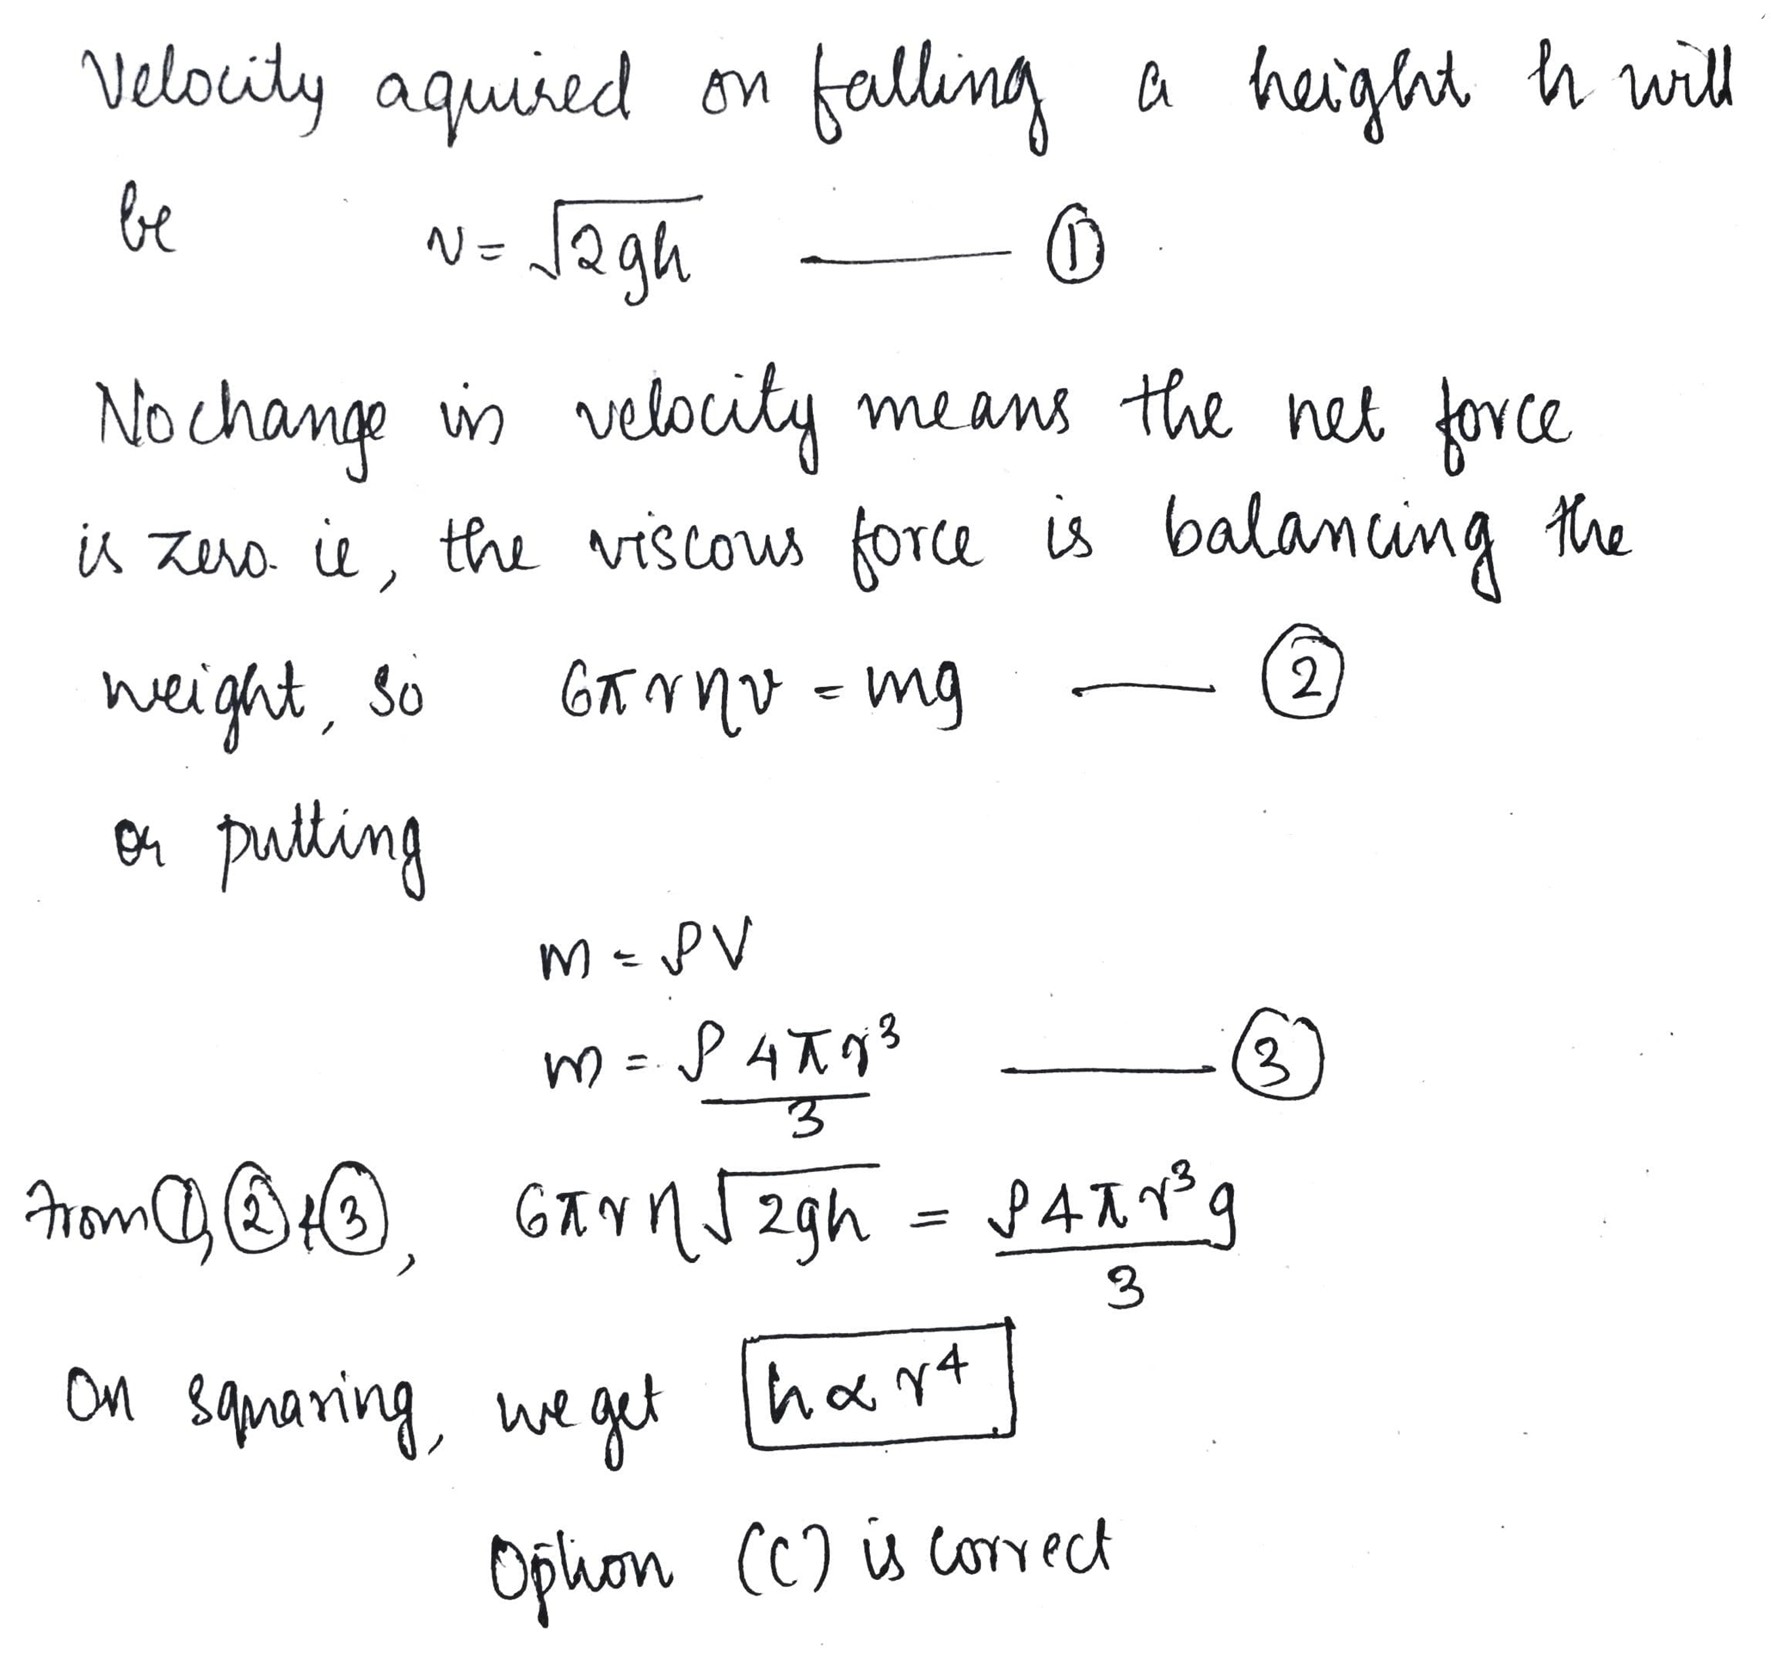 Velocity aquired on falling a height h will
be v = √2gh —— ①
No change in velocity means the net force
is zero. ie, the viscous force is balancing the
weight, so 6πrηv = mg — ②
or putting
m = ρV
m = ρ4πr³/3 —— ③
From ①, ② & ③, 6πrη√2gh = ρ4πr³g/3
On squaring, we get h ∝ r⁴
Option (C) is correct